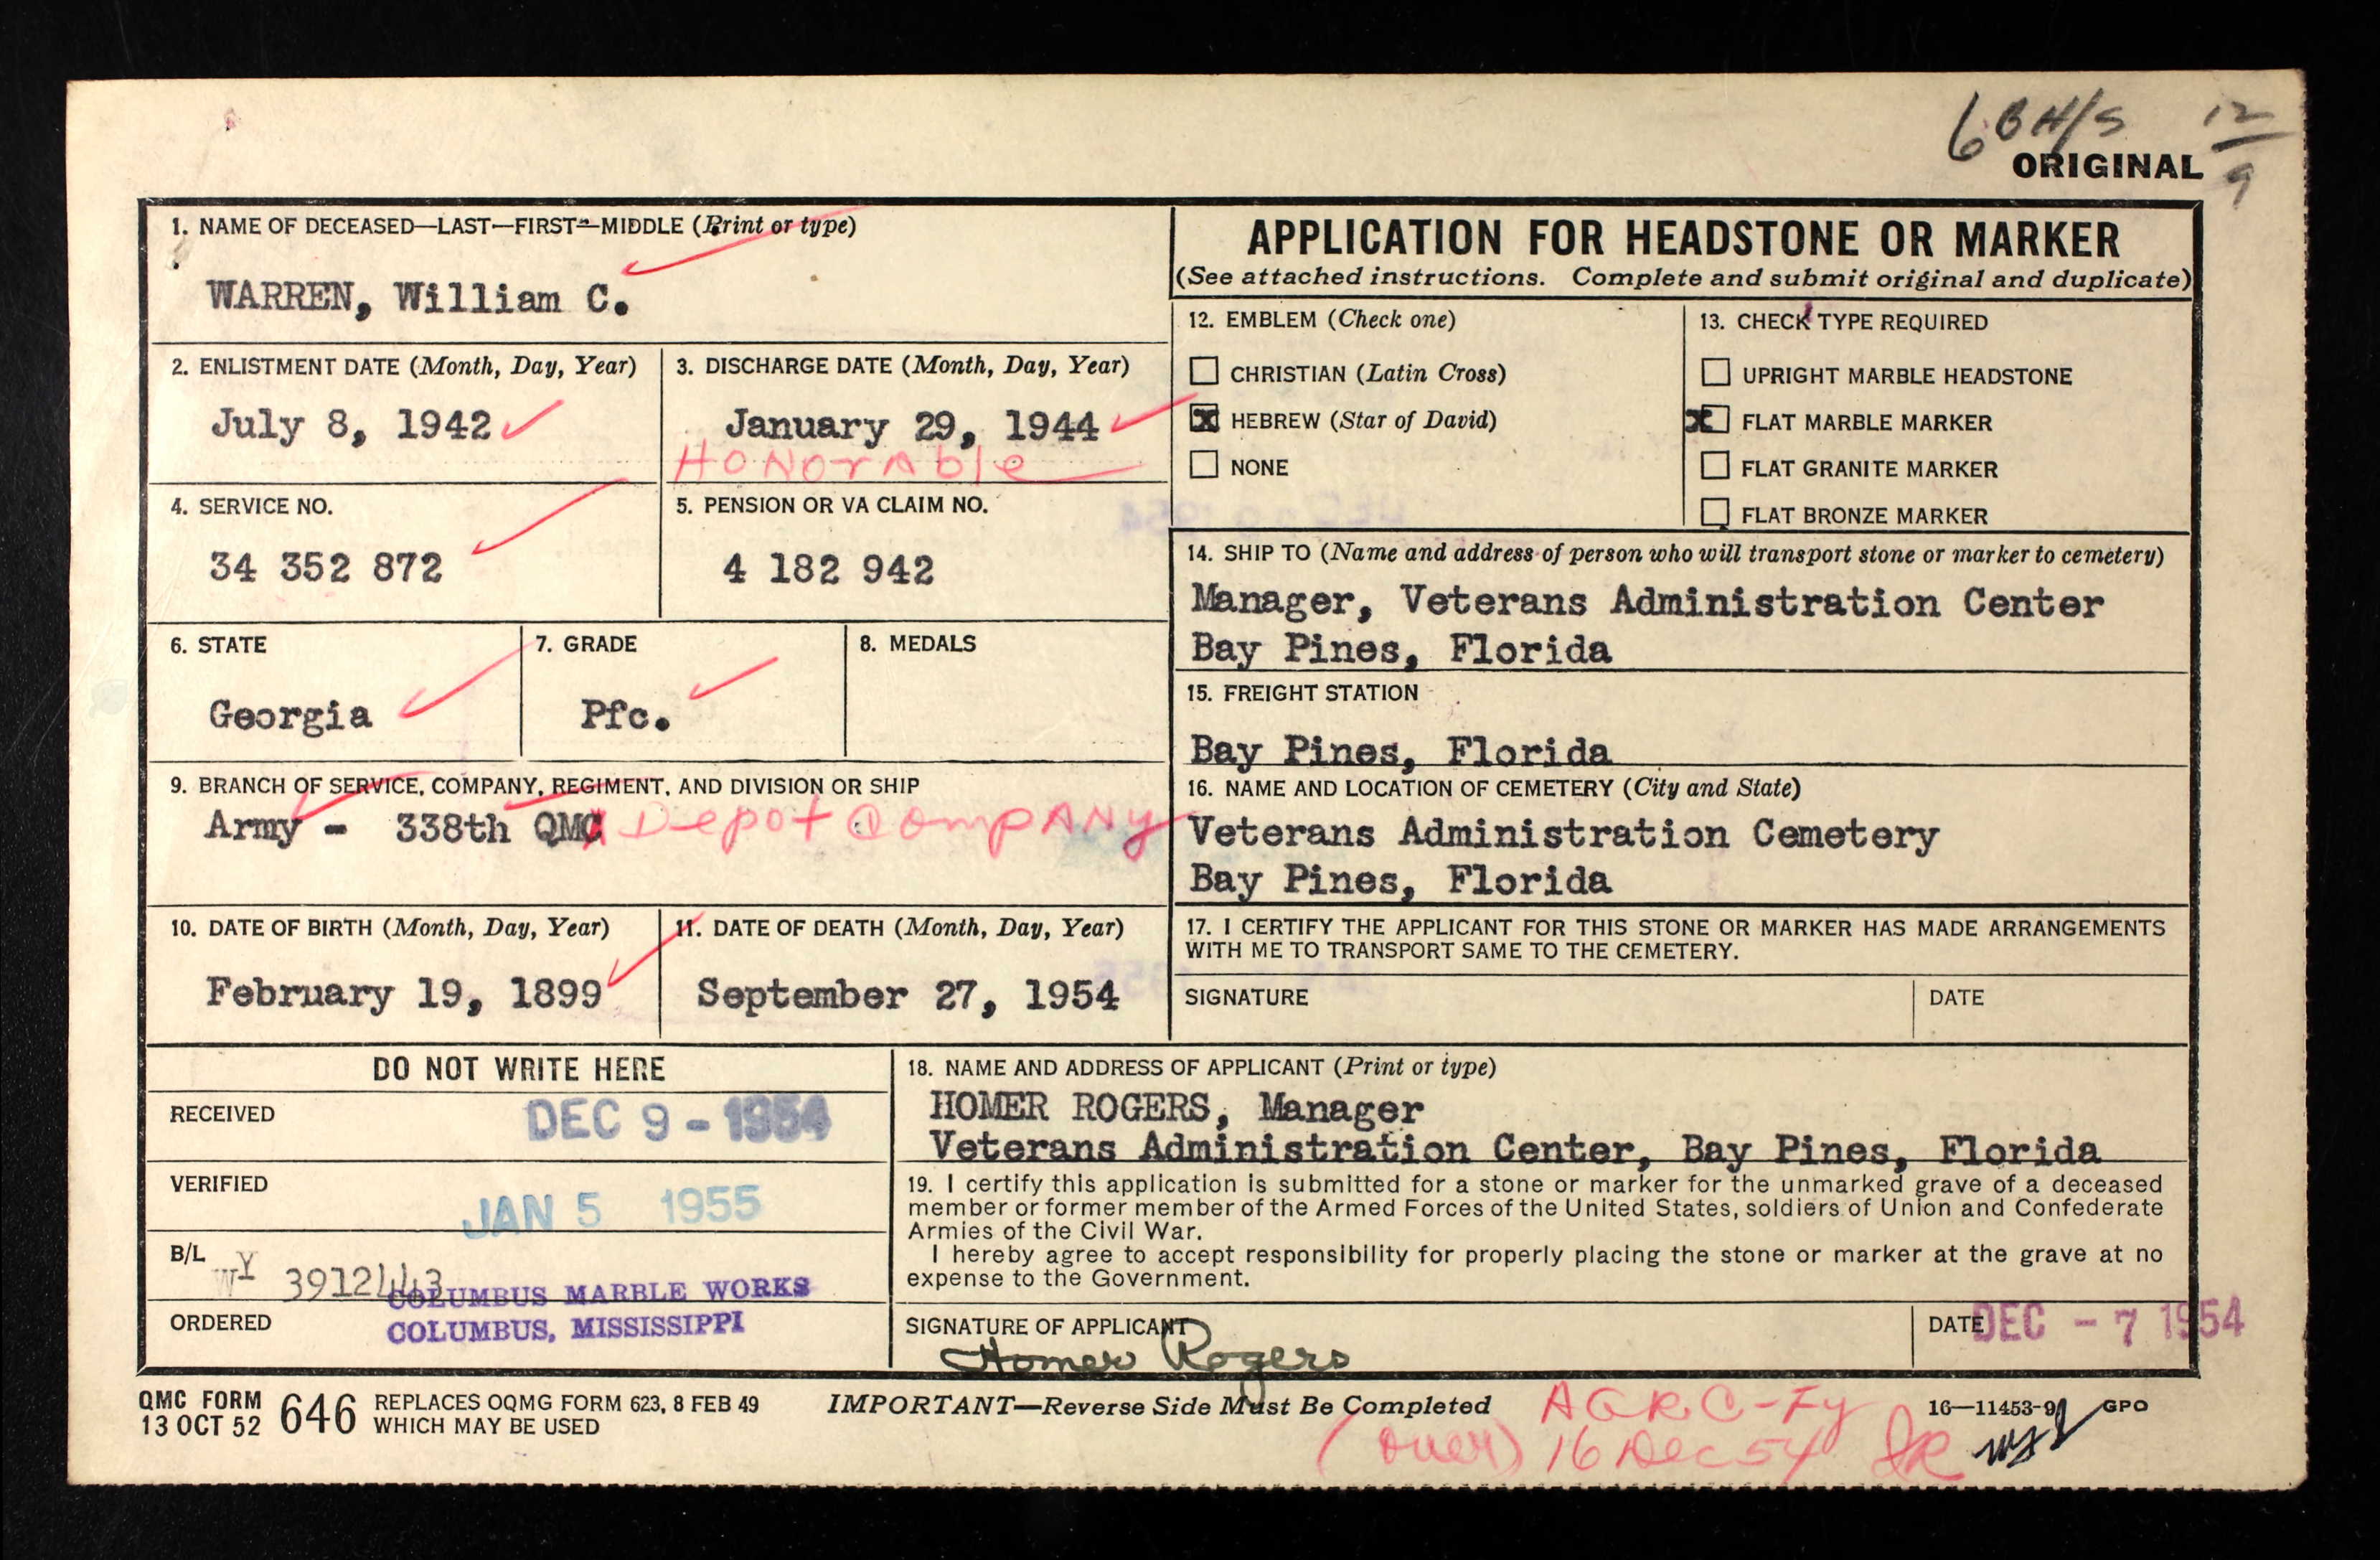 6BH/S 12/9
ORIGINAL
1. NAME OF DECEASED—LAST—FIRST—MIDDLE (Print or type)
WARREN, William C.
2. ENLISTMENT DATE (Month, Day, Year)
July 8, 1942
3. DISCHARGE DATE (Month, Day, Year)
January 29, 1944
HONorAble
4. SERVICE NO.
34 352 872
5. PENSION OR VA CLAIM NO.
4 182 942
6. STATE
Georgia
7. GRADE
Pfc.
8. MEDALS
9. BRANCH OF SERVICE, COMPANY, REGIMENT, AND DIVISION OR SHIP
Army - 338th QMC Depot CompANy
10. DATE OF BIRTH (Month, Day, Year)
February 19, 1899
11. DATE OF DEATH (Month, Day, Year)
September 27, 1954
APPLICATION FOR HEADSTONE OR MARKER
(See attached instructions. Complete and submit original and duplicate)
12. EMBLEM (Check one)
CHRISTIAN (Latin Cross)
X HEBREW (Star of David)
NONE
13. CHECK TYPE REQUIRED
UPRIGHT MARBLE HEADSTONE
X FLAT MARBLE MARKER
FLAT GRANITE MARKER
FLAT BRONZE MARKER
14. SHIP TO (Name and address of person who will transport stone or marker to cemetery)
Manager, Veterans Administration Center
Bay Pines, Florida
15. FREIGHT STATION
Bay Pines, Florida
16. NAME AND LOCATION OF CEMETERY (City and State)
Veterans Administration Cemetery
Bay Pines, Florida
17. I CERTIFY THE APPLICANT FOR THIS STONE OR MARKER HAS MADE ARRANGEMENTS
WITH ME TO TRANSPORT SAME TO THE CEMETERY.
SIGNATURE
DATE
DO NOT WRITE HERE
RECEIVED
DEC 9 - 1954
VERIFIED
JAN 5 1955
B/L
WY 3912443
ORDERED
COLUMBUS MARBLE WORKS
COLUMBUS, MISSISSIPPI
18. NAME AND ADDRESS OF APPLICANT (Print or type)
HOMER ROGERS, Manager
Veterans Administration Center, Bay Pines, Florida
19. I certify this application is submitted for a stone or marker for the unmarked grave of a deceased
member or former member of the Armed Forces of the United States, soldiers of Union and Confederate
Armies of the Civil War.
I hereby agree to accept responsibility for properly placing the stone or marker at the grave at no
expense to the Government.
SIGNATURE OF APPLICANT
Homer Rogers
DATE
DEC - 7 1954
QMC FORM
13 OCT 52
646
REPLACES OQMG FORM 623, 8 FEB 49
WHICH MAY BE USED
IMPORTANT—Reverse Side Must Be Completed
AGRC-Fy
(over) 16 Dec 54 JR
16—11453-9 GPO